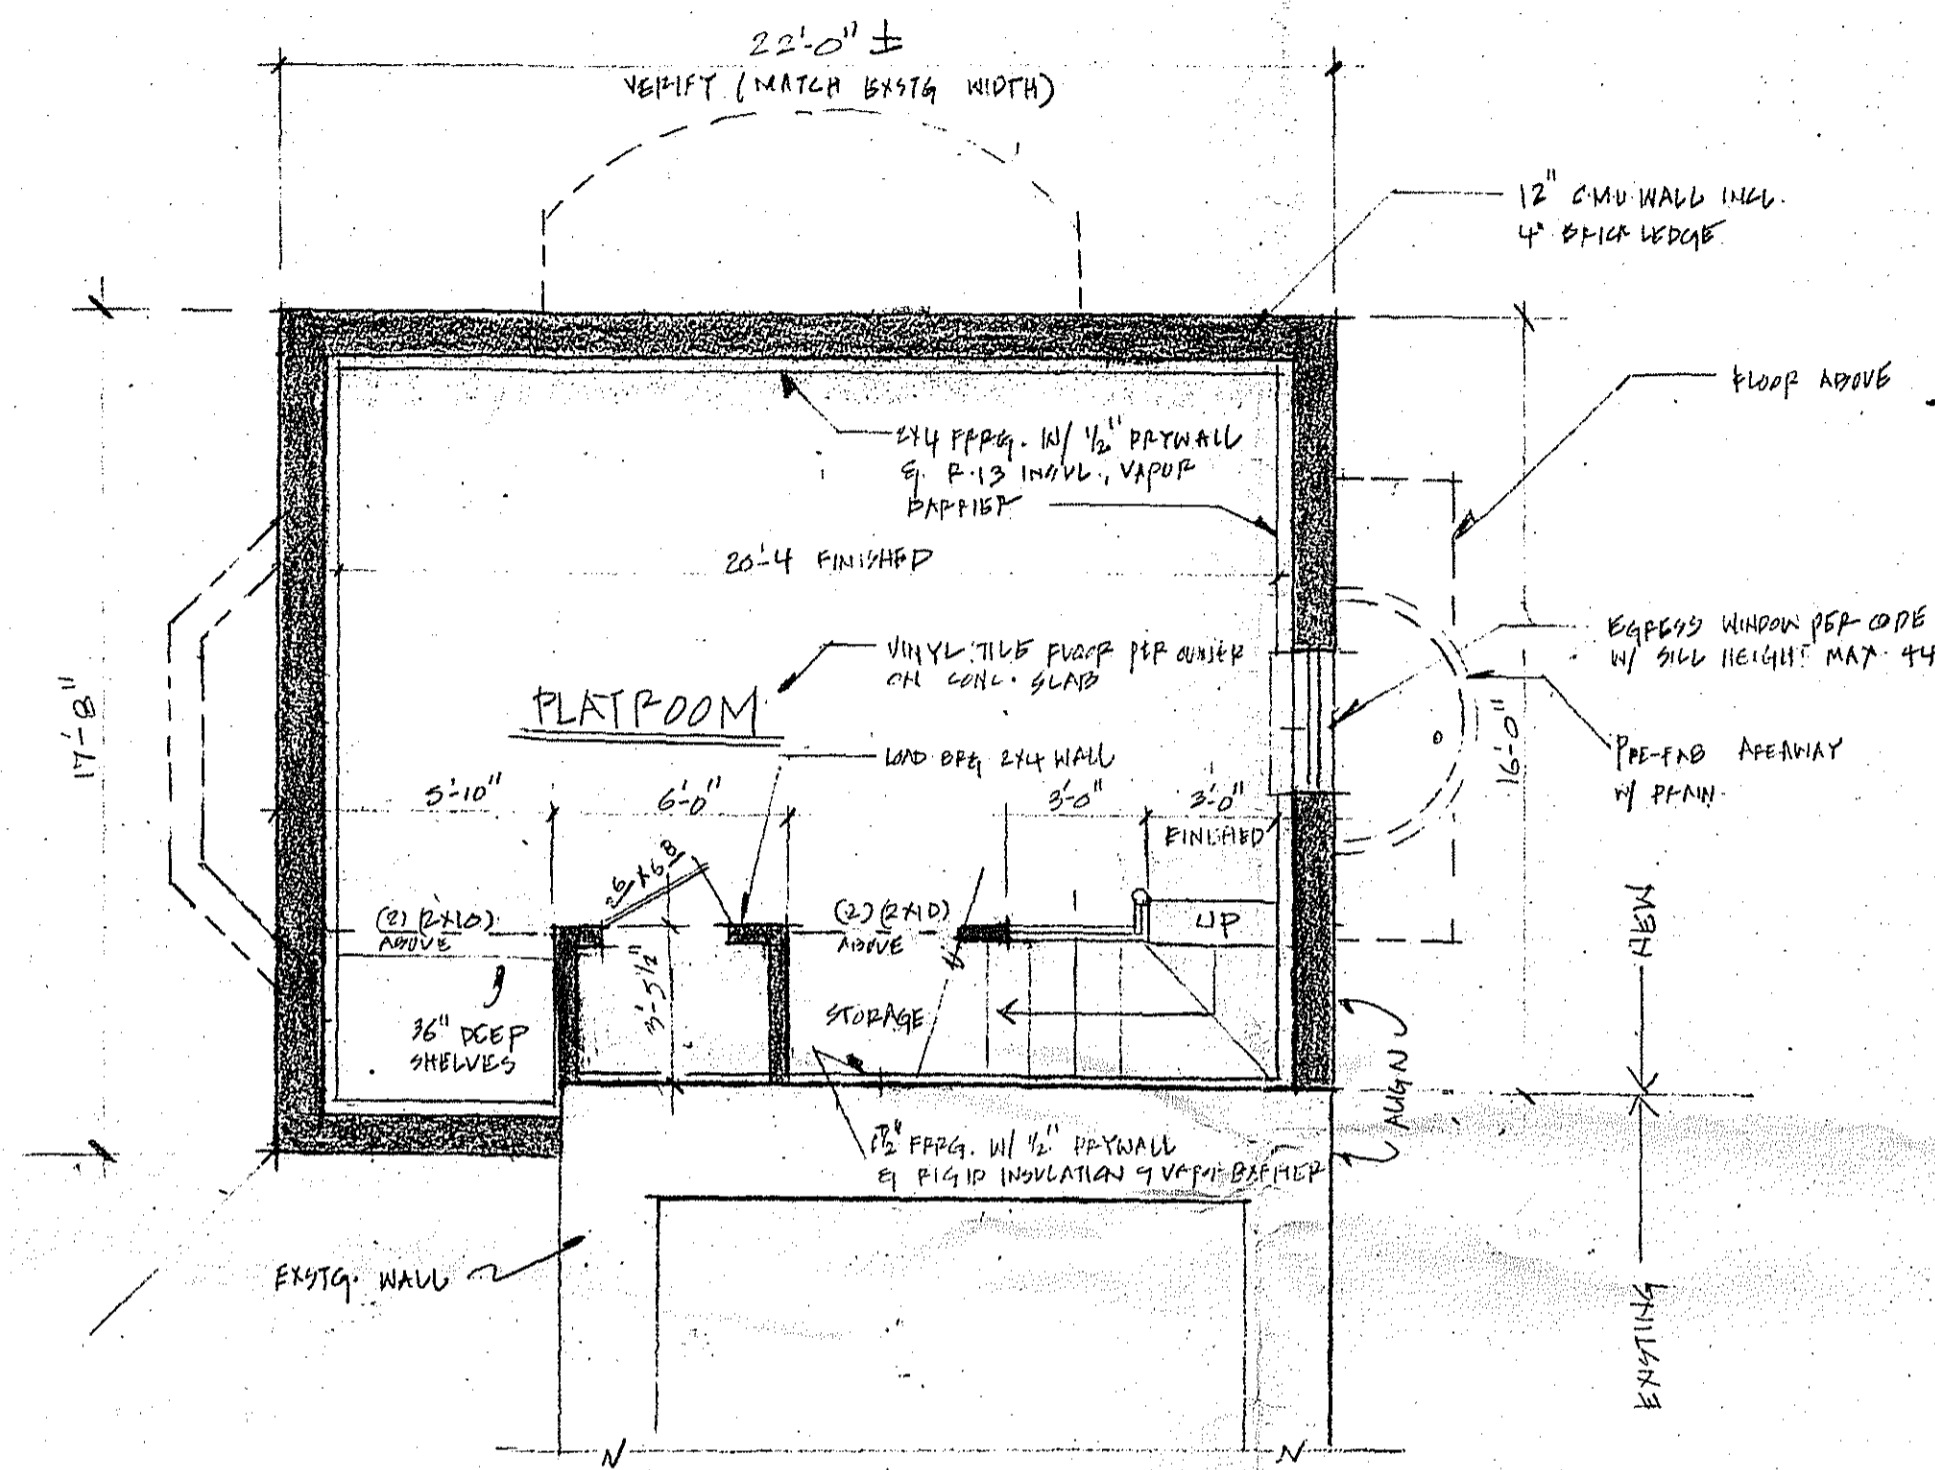 22'-0" ±
VERIFY (MATCH EXSTG WIDTH)
12" C.M.U. WALL INCL.
4" BRICK LEDGE
FLOOR ABOVE
2X4 FRRG. W/ 1/2" DRYWALL
& R-13 INSUL., VAPOR
BARRIER
20'-4 FINISHED
EGRESS WINDOW PER CODE
W/ SILL HEIGHT MAX. 44
VINYL TILE FLOOR PER OWNER
ON CONC. SLAB
PLAYROOM
17'-8"
16'-0"
LOAD BRG 2X4 WALL
PRE-FAB AREAWAY
W/ DRAIN
5'-10"
6'-0"
3'-0"
3'-0"
FINISHED
26 X 68
(2) (2X10)
ABOVE
(2) (2X10)
ABOVE
UP
NEW
3'-5 1/2"
36" DEEP
SHELVES
STORAGE
ALIGN
FRRG. W/ 1/2" DRYWALL
& RIGID INSULATION & VAPOR BARRIER
EXSTG. WALL
EXISTING
N
N